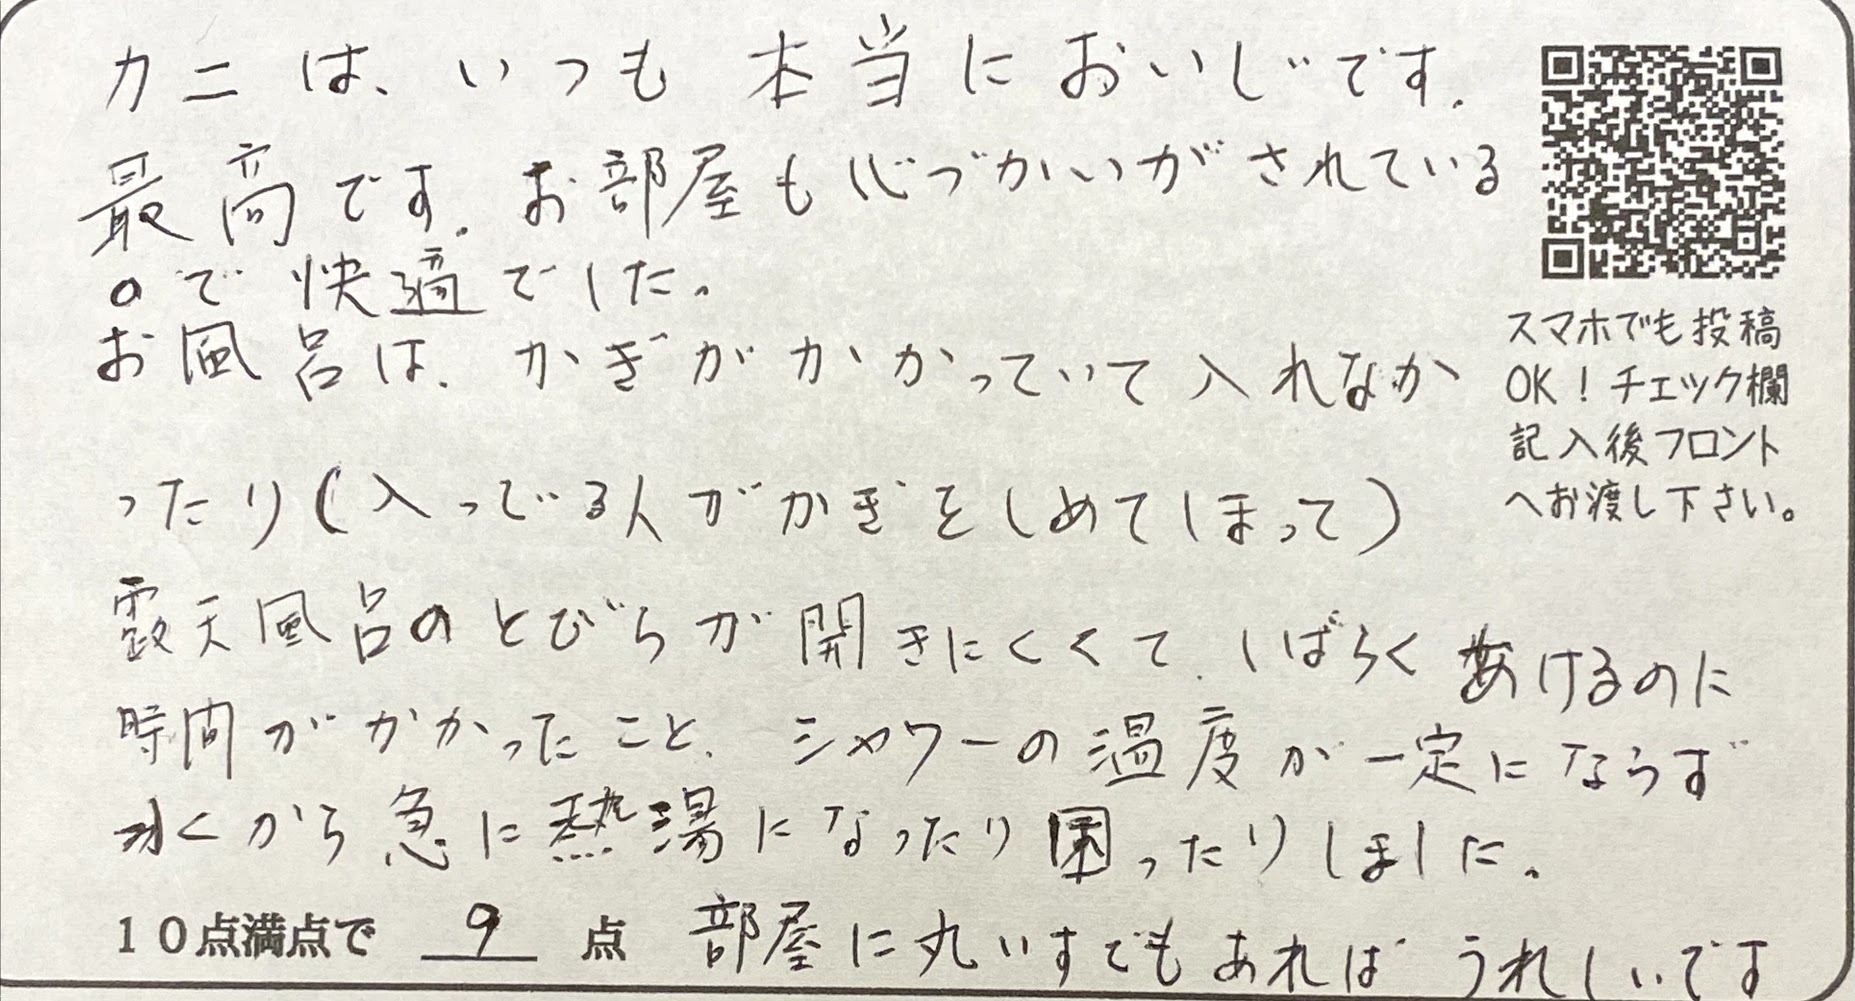 カニは、いつも本当においしいです。
最高です。お部屋も心づかいがされている
ので快適でした。
お風呂は、かぎがかかっていて入れなか
ったり(入ってる人がかぎをしめてしまって)
露天風呂のとびらが開きにくくて、しばらくあけるのに
時間がかかったこと、シャワーの温度が一定にならず
水くから急に熱湯になったり困ったりしました。
10点満点で 9 点 部屋に丸いすでもあればうれしいです
スマホでも投稿
OK!チェック欄
記入後フロント
へお渡し下さい。